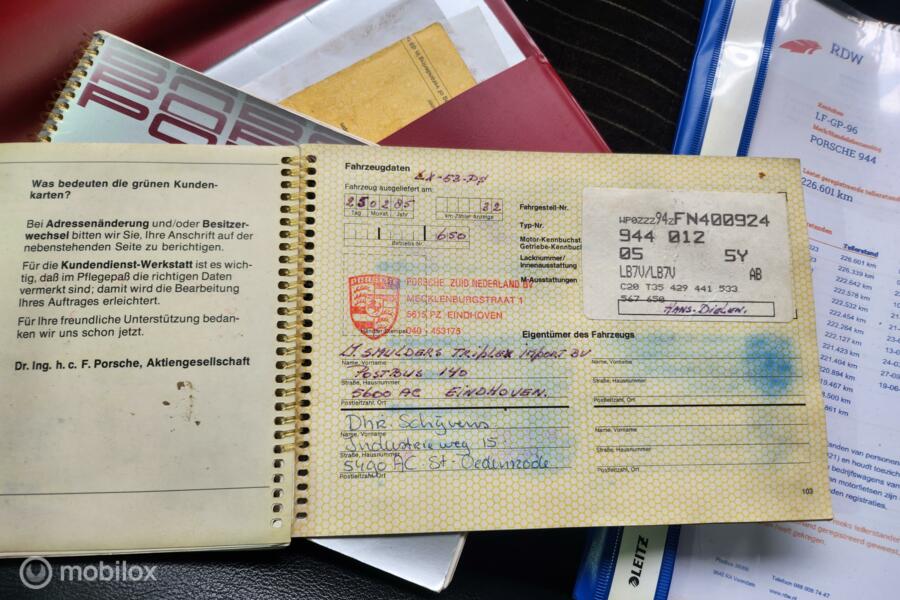 Was bedeuten die grünen Kunden-
karten?
Bei Adressenänderung und/oder Besitzer-
wechsel bitten wir Sie, Ihre Anschrift auf der
nebenstehenden Seite zu berichtigen.
Für die Kundendienst-Werkstatt ist es wich-
tig, daß im Pflegepaß die richtigen Daten
vermerkt sind; damit wird die Bearbeitung
Ihres Auftrages erleichtert.
Für Ihre freundliche Unterstützung bedan-
ken wir uns schon jetzt.
Dr. Ing. h. c. F. Porsche, Aktiengesellschaft
Fahrzeugdaten
Fahrzeug ausgeliefert am:
250285 32
Tag Monat Jahr km-Zähler-Anzeige
650
Betriebs-Nr.
Fahrgestell-Nr.
Typ-Nr.
Motor-Kennbuchst.
Getriebe-Kennbuchst.
Lacknummer/
Innenausstattung
M-Ausstattungen
WP0ZZZ94ZFN400924
944 012
05 5Y
LB7V/LB7V AB
C20 T35 429 441 533
567 650
Hans Dielen.
PORSCHE
PORSCHE ZUID-NEDERLAND BV
MECKLENBURGSTRAAT 1
5615 PZ EINDHOVEN
040 - 453175
Eigentümer des Fahrzeugs
Smulders Triplex import BV
Name, Vorname
Postbus 140
Straße, Hausnummer
5600 AC Eindhoven.
Postleitzahl, Ort
Dhr. Schijvens
Name, Vorname
Industrieweg 15
Straße, Hausnummer
5490 AC St. Oedenrode
Postleitzahl, Ort
Name, Vorname
Straße, Hausnummer
Postleitzahl, Ort
Name, Vorname
Straße, Hausnummer
Postleitzahl, Ort
103
RDW
Kenteken
LF-GP-96
PORSCHE 944
226.601 km
Tellerstand
226.601 km
226.339 km
222.642 km
222.578 km
222.532 km
222.454 km
222.264 km
222.127 km
221.423 km
221.404 km
LEITZ
mobilox